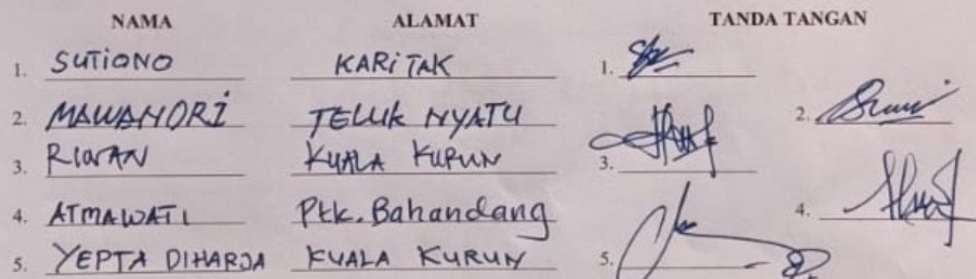 NAMA ALAMAT TANDA TANGAN
1. SUTIONO KARITAK 1.
2. MAWANORI TELUK NYATU 2.
3. RIWAN KUALA KURUN 3.
4. ATMAWATI Ptk. Bahandang 4.
5. YEPTA DIHARJA KUALA KURUN 5.